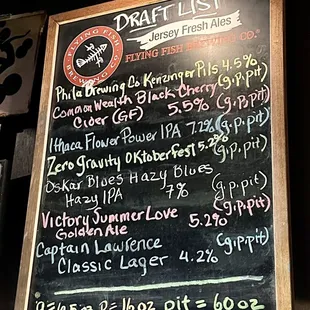 DRAFT LIST
Jersey Fresh Ales
FLYING FISH BREWING CO.
FLYING FISH
BREWING CO
Phila Brewing Co Kenzinger Pils 4.5%
Common Wealth Black Cherry (g,p,pit)
Cider (GF) 5.5% (g,p,pit)
Ithaca Flower Power IPA 7.2% (g,p,pit)
Zero Gravity Oktoberfest 5.2% (g,p,pit)
Oskar Blues Hazy Blues
Hazy IPA 7% (g,p,pit)
Victory Summer Love (g,p,pit)
Golden Ale 5.2%
Captain Lawrence (g,p,pit)
Classic Lager 4.2%
16oz pit = 60oz